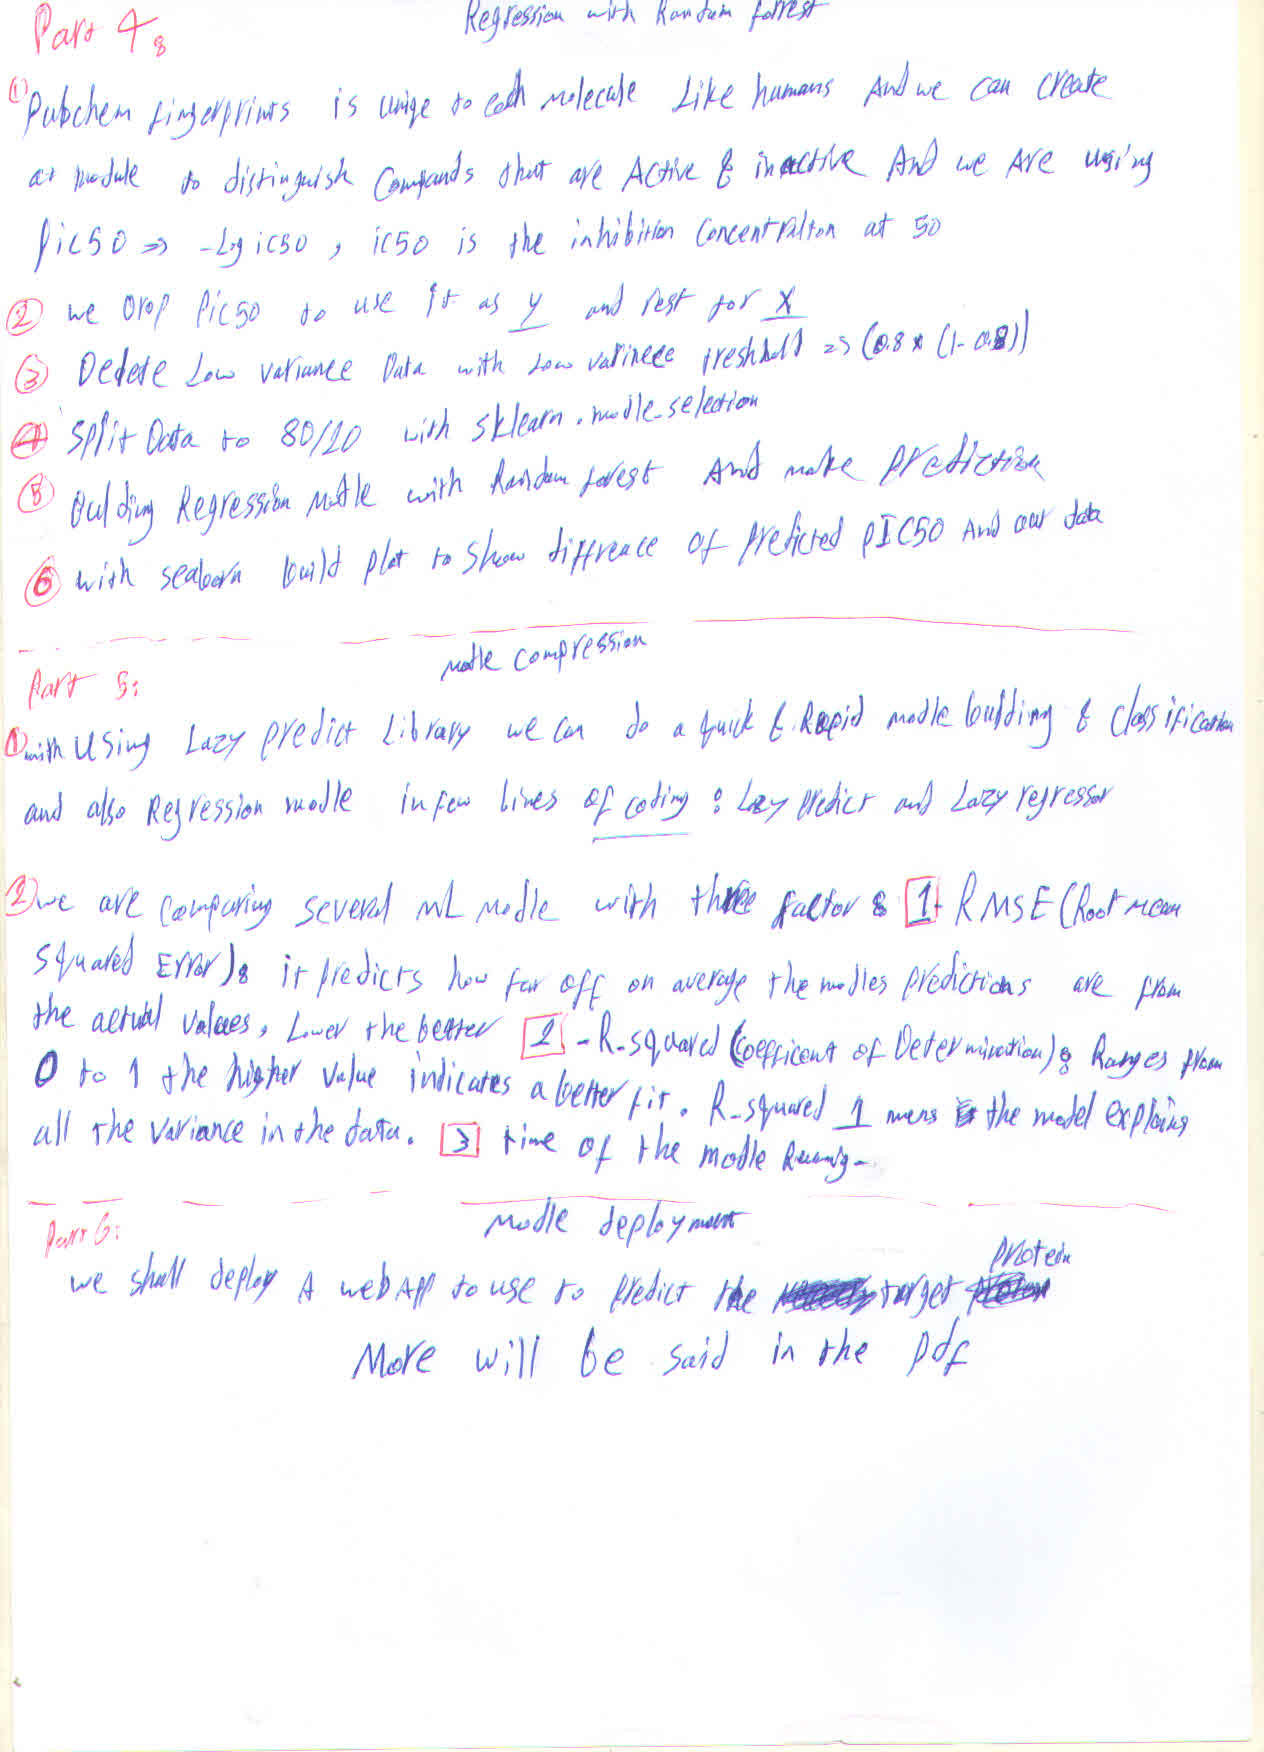 Part 4:
Regression with Random forrest
① Pubchem fingerprints is uniqe to each molecule Like humans And we can create
a module to distinguish Compands that are Active & inactive And we Are using
Pic50 => -Log ic50 , ic50 is the inhibition Concentration at 50
② we Drop Pic50 to use it as y and rest for X
③ Delete Low variance Data with Low varinece treshhold => (0.8 * (1-0.8))
④ Split Data to 80/20 with sklearn.modle_selection
⑤ Bulding Regression modle with Random forest And make prediction
⑥ with seaborn build plot to show diffrence of predicted PIC50 And our data
Part 5:
modle compression
① with Using Lazy predict Library we can do a quick & Rapid modle building & classification
and also Regression modle in few lines of coding : Lazy predict and Lazy regressor
② we are comparing several ML modle with three factor : 1- RMSE (Root Mean
Squared Error): it predicts how far off on average the modles predictions are from
the actual values, Lower the better 2 - R-squared (Coefficent of Determination): Ranges from
0 to 1 the higher value indicates a better fit. R-squared 1 means the model explains
all the variance in the data. 3 time of the modle Running-
Part 6:
Modle deployment
we shall deploy A web App to use to predict the target protein
More will be said in the pdf